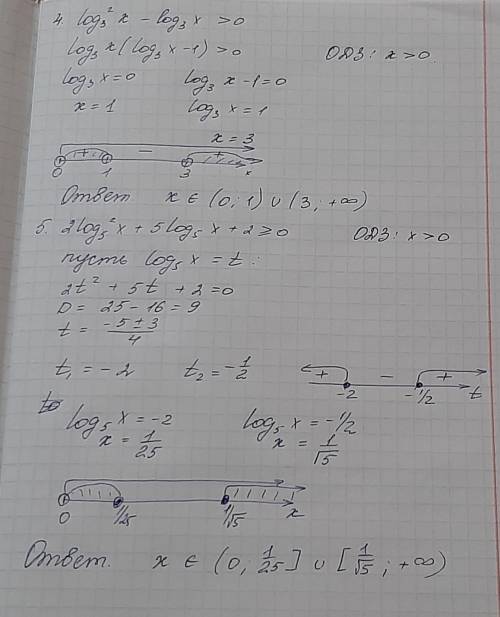 4. log₃²x − log₃x > 0
log₃x(log₃x−1) > 0 ОДЗ: x>0.
log₃x=0 log₃x−1=0
x=1 log₃x=1
x=3
+ − +
0 1 3 x
Ответ x ∈ (0; 1) ∪ (3; +∞)
5. 2log₅²x + 5log₅x + 2 ≥ 0 ОДЗ: x>0
пусть log₅x = t.
2t² + 5t + 2 = 0
D = 25 − 16 = 9
t = (−5 ± 3)/4
t₁ = −2 t₂ = −1/2
+ − +
−2 −1/2 t
log₅x = −2 log₅x = −1/2
x = 1/25 x = 1/√5
0 1/25 1/√5 x
Ответ. x ∈ (0, 1/25] ∪ [1/√5; +∞)